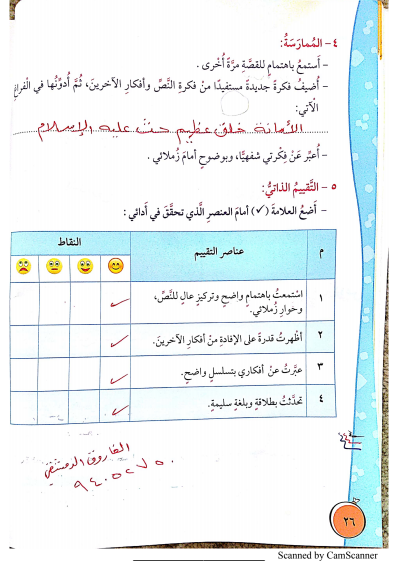 ٤ - المُمارَسَةُ:
- أَستمعُ باهتمامٍ للقصَّةِ مرَّةً أُخرى .
- أُضيفُ فكرةً جديدةً مستفيدًا منْ فكرةِ النَّصِّ وأفكارِ الآخرينَ، ثُمَّ أُدوِّنُها في الفراغِ
الآتي:
الأمانة خلق عظيم حث عليه الإسلام
- أُعبِّر عَنْ فِكْرتي شفهيًّا، وبوضوحٍ أمامَ زُملائي .
٥ - التَّقييمُ الذاتيُّ:
- أَضعُ العلامةَ (✓) أمامَ العنصرِ الَّذي تحقَّقَ في أَدائي :
م عناصر التقييم النقاط
١ استمعتُ باهتمامٍ واضحٍ وتركيزٍ عالٍ للنَّصِّ،
وحوارِ زُملائي. ✓
٢ أظهرتُ قدرةً على الإفادةِ منْ أفكارِ الآخرينَ. ✓
٣ عبَّرتُ عنْ أفكاري بتسلسلٍ واضحٍ. ✓
٤ تحدَّثتُ بطلاقةٍ وبلغةٍ سليمةٍ. ✓
الفاروق الدمشقي
٢٦
Scanned by CamScanner